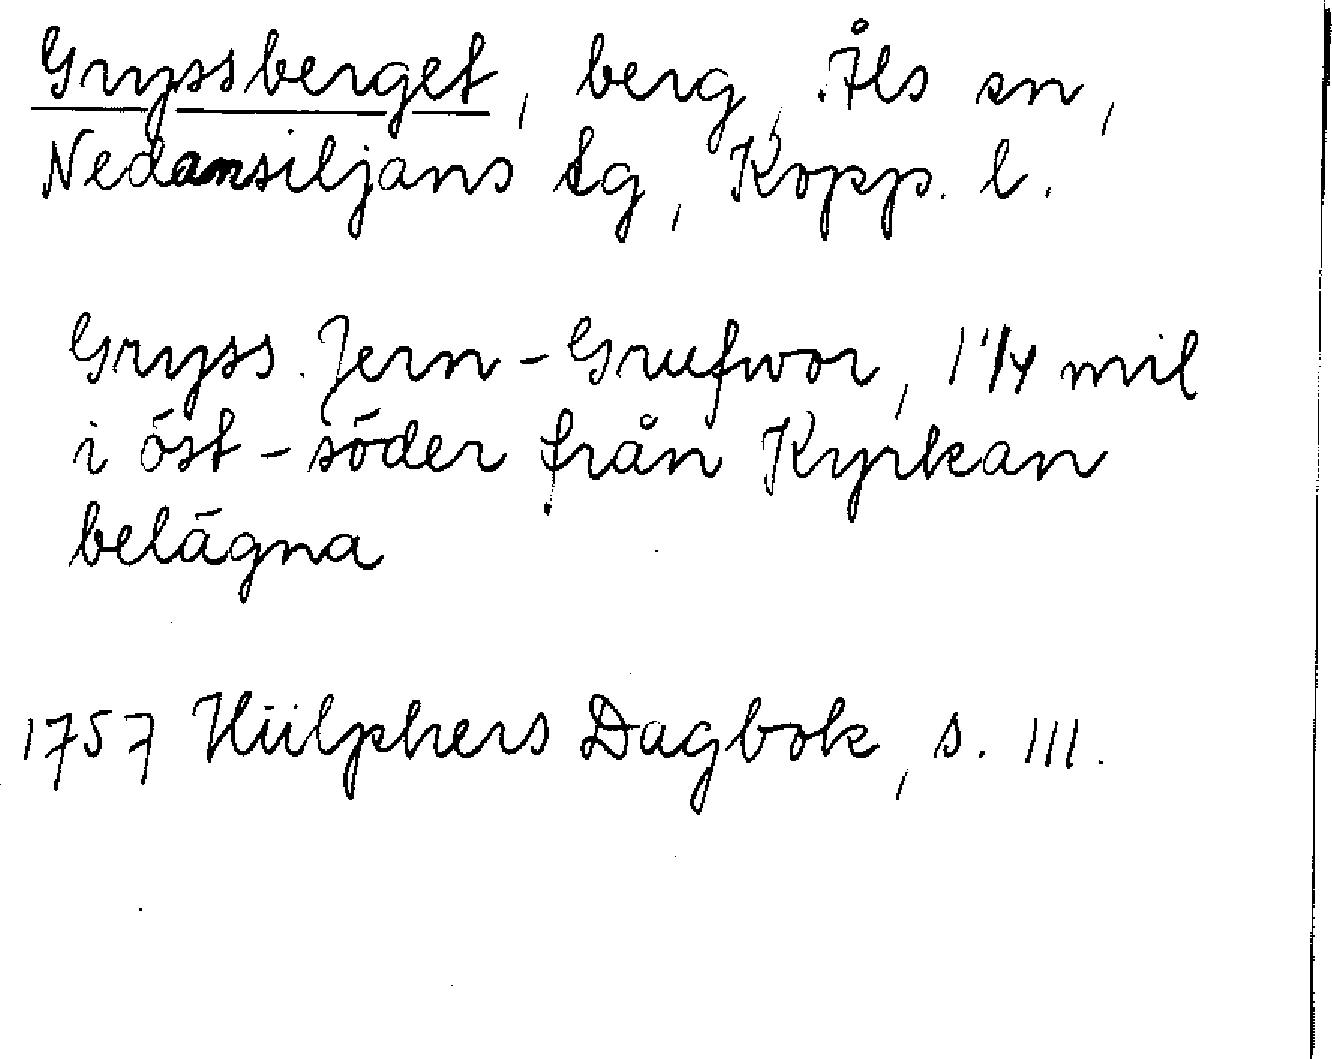 Gryssberget, berg, Åls sn,
Nedansiljans tg, Kopp. l.
Gryss Jern-Grufwor, 1 1/4 mil
i öst-söder från Kyrkan
belägna
1757 Hülphers Dagbok, s. 111.